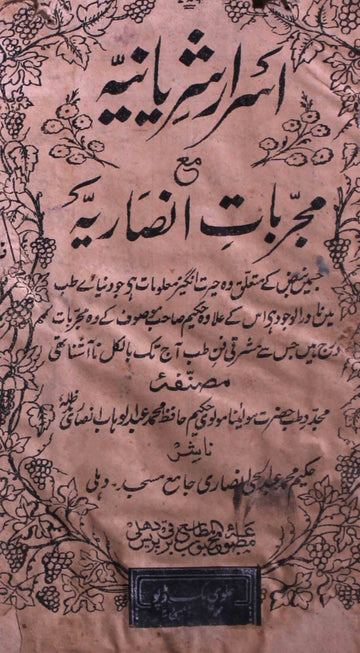 اسرار شریانیہ
مع
مجربات انصاریہ
جسمیں نبض کے متعلق وہ حیرت انگیز معلومات ہیں جو دنیائے طب
میں نادر الوجود ہیں اس کے علاوہ حکیم صاحب موصوف کے وہ مجربات
درج ہیں جس سے مشرقی فن طب آج تک بالکل نا آشنا تھی
مصنفہ
مجدد طب حضرت مولینا مولوی حکیم حافظ محمد عبد الوہاب انصاری مدظلہ
ناشر
حکیم محمد عبد الحی انصاری جامع مسجد۔ دہلی
مطبوعہ محبوب المطابع برقی پریس دہلی
علوی بک ڈپو